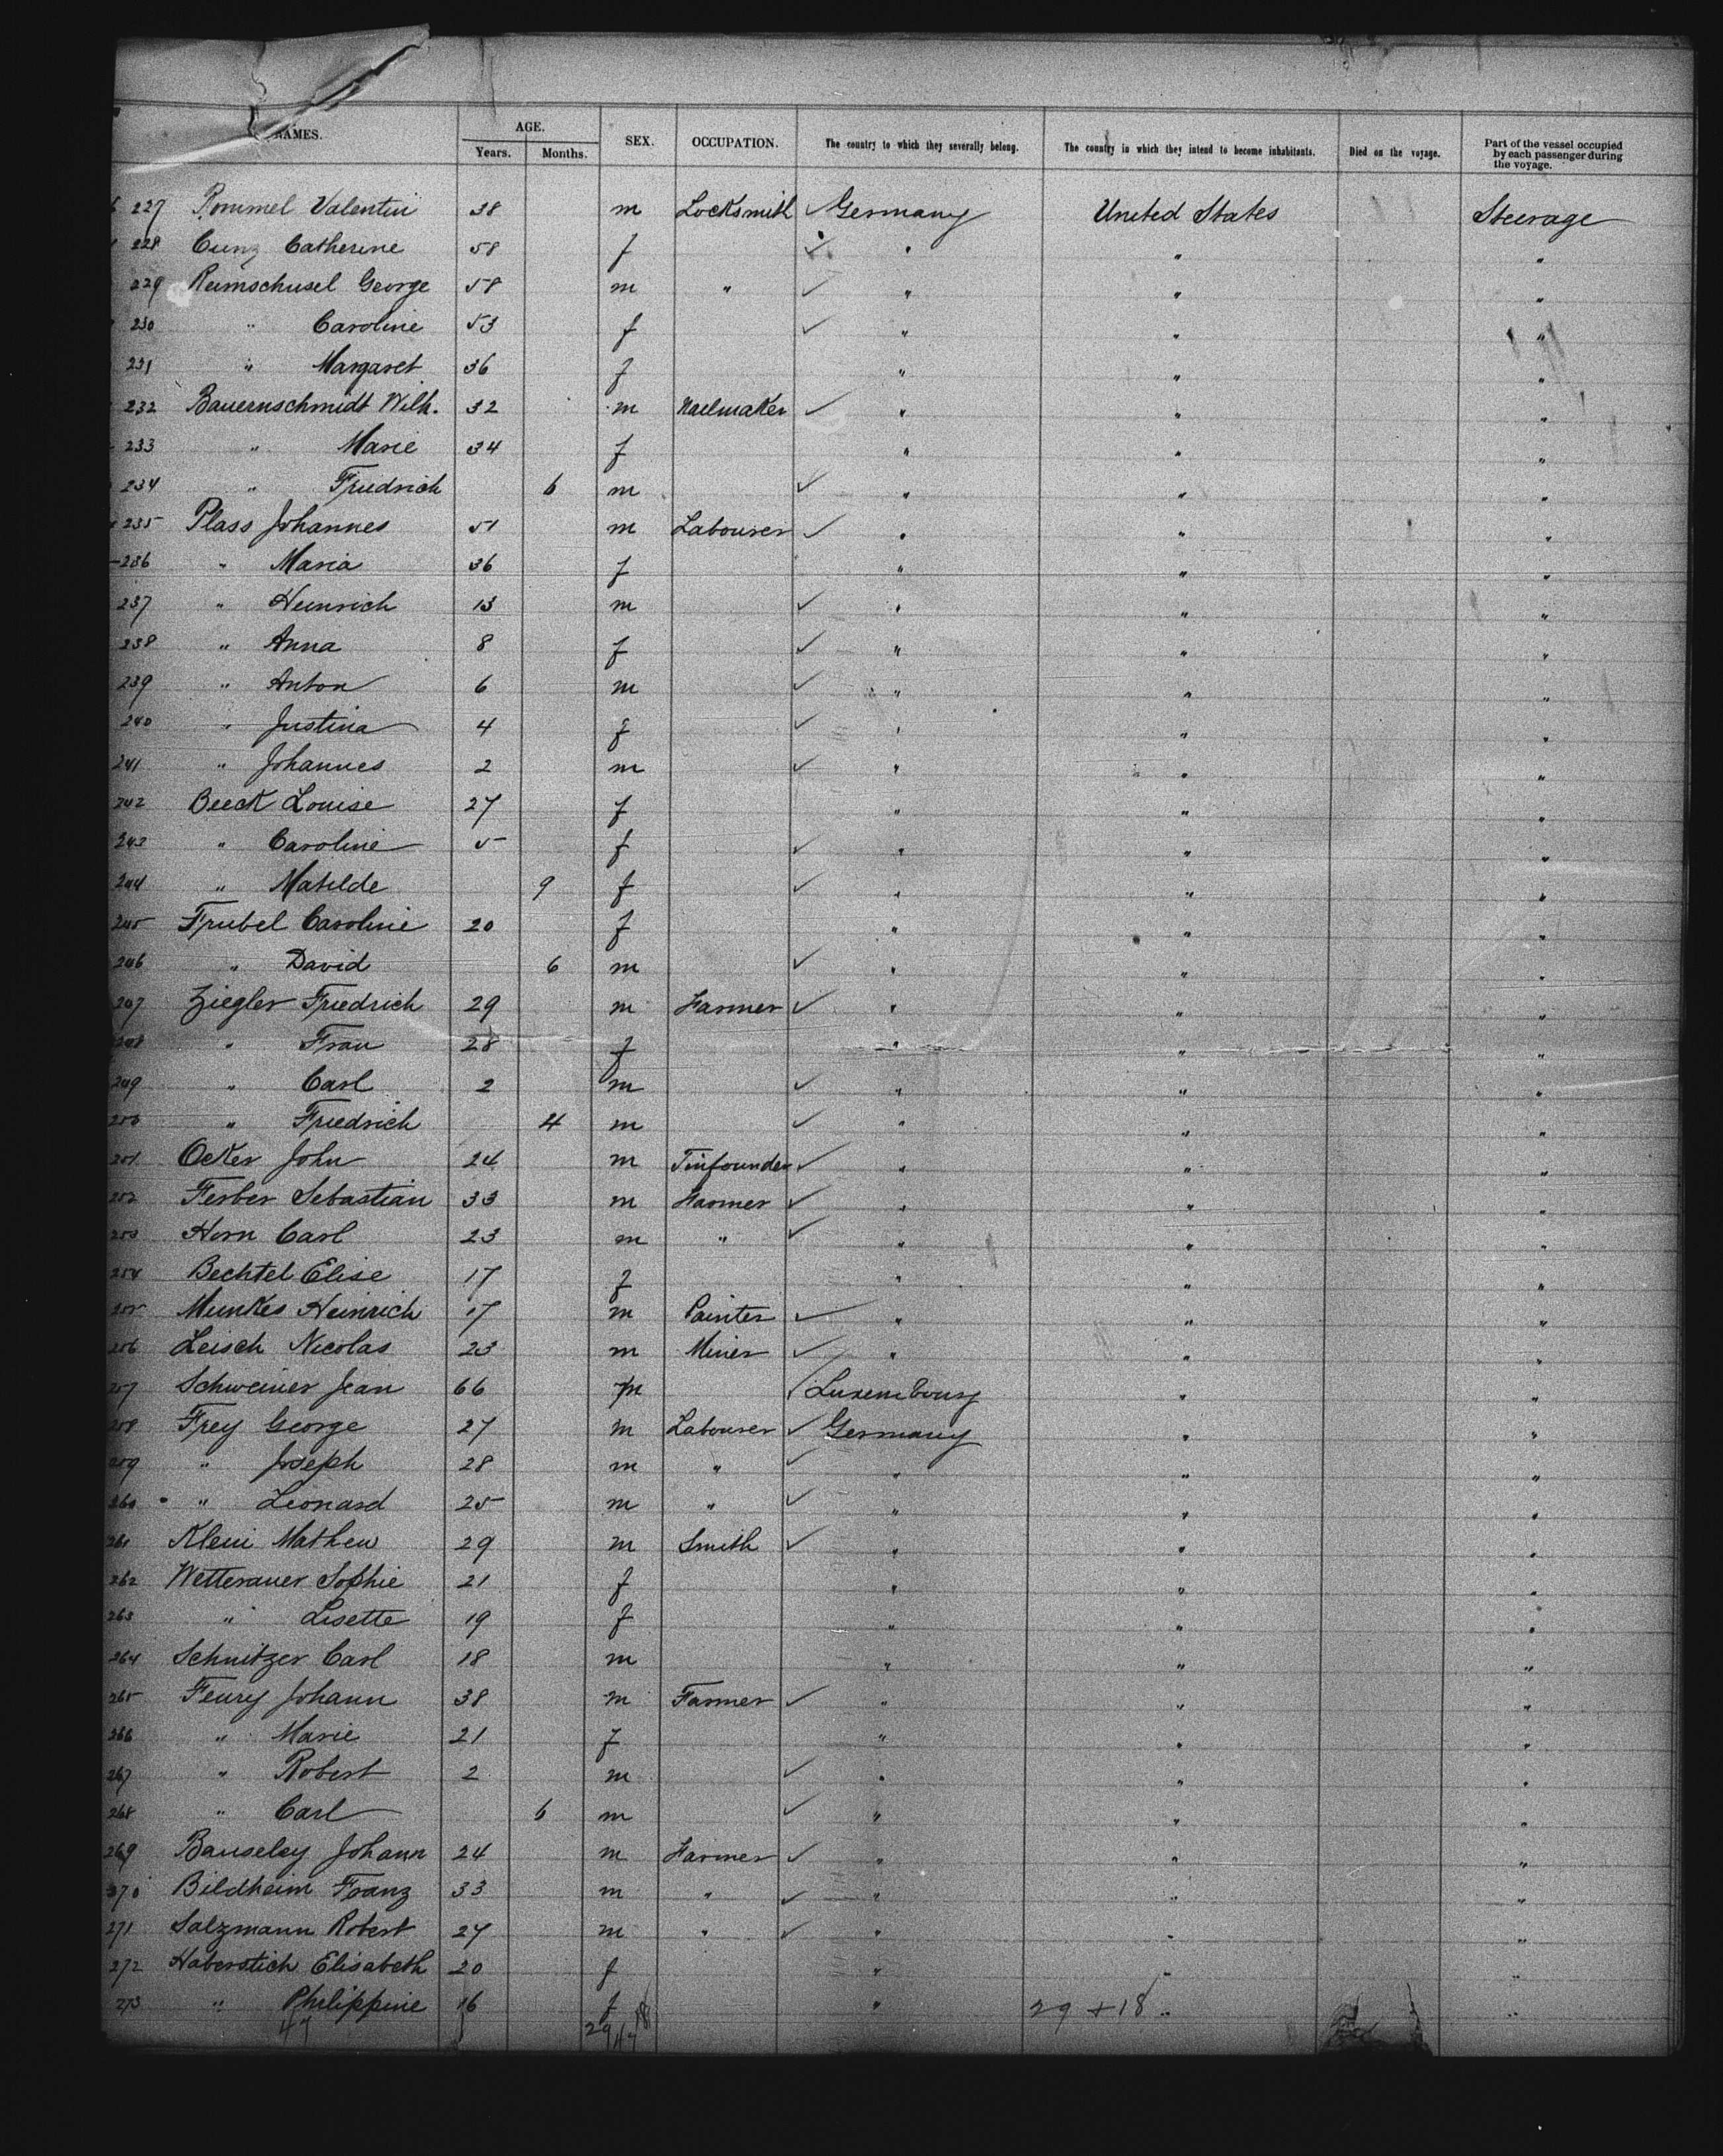 NAMES. AGE. SEX. OCCUPATION. The country to which they severally belong. The country in which they intend to become inhabitants. Died on the voyage. Part of the vessel occupied by each passenger during the voyage.
Years. Months.
227 Rommel Valentin 38 m Locksmith ✓ Germany United States Steerage
228 Cunz Catherine 58 f ✓ " " "
229 Reimschusel George 58 m " ✓ " " "
230 " Caroline 53 f ✓ " " "
231 " Margaret 36 f " " "
232 Bauernschmidt Wilh. 32 m Nailmaker ✓ " " "
233 " Marie 34 f " " "
234 " Friedrich 6 m ✓ " " "
235 Plass Johannes 51 m Labourer ✓ " " "
236 " Maria 36 f " " "
237 " Heinrich 13 m ✓ " " "
238 " Anna 8 f ✓ " " "
239 " Anton 6 m ✓ " " "
240 " Justina 4 f ✓ " " "
241 " Johannes 2 m ✓ " " "
242 Beeck Louise 27 f " " "
243 " Caroline 5 f ✓ " " "
244 " Matilde 9 f ✓ " " "
245 Frubel Caroline 20 f " " "
246 " David 6 m ✓ " " "
247 Ziegler Friedrich 29 m Farmer ✓ " " "
248 " Frau 28 f " " "
249 " Carl 2 m ✓ " " "
250 " Friedrich 4 m ✓ " " "
251 Ocker John 24 m Tinfounder ✓ " " "
252 Ferber Sebastian 33 m Farmer ✓ " " "
253 Horn Carl 23 m " ✓ " " "
254 Bechtel Elise 17 f " " "
255 Munkes Heinrich 17 m Painter ✓ " " "
256 Leisch Nicolas 23 m Miner ✓ " " "
257 Schweiner Jean 66 m Luxembourg " "
258 Frey George 27 m Labourer ✓ Germany " "
259 " Joseph 28 m " ✓ " " "
260 " Leonard 25 m " ✓ " " "
261 Klein Mathew 29 m Smith ✓ " " "
262 Wetterauer Sophie 21 f " " "
263 " Lisette 19 f " " "
264 Schnitzer Carl 18 m " " "
265 Feury Johann 38 m Farmer ✓ " " "
266 " Marie 21 f " " "
267 " Robert 2 m ✓ " " "
268 " Carl 6 m ✓ " " "
269 Bauseley Johann 24 m Farmer ✓ " " "
270 Bildheim Franz 33 m " ✓ " " "
271 Salzmann Robert 27 m " ✓ " " "
272 Haberstich Elisabeth 20 f " " "
273 " Philippine 16 f " 29 + 18 " "
47 29 18 47